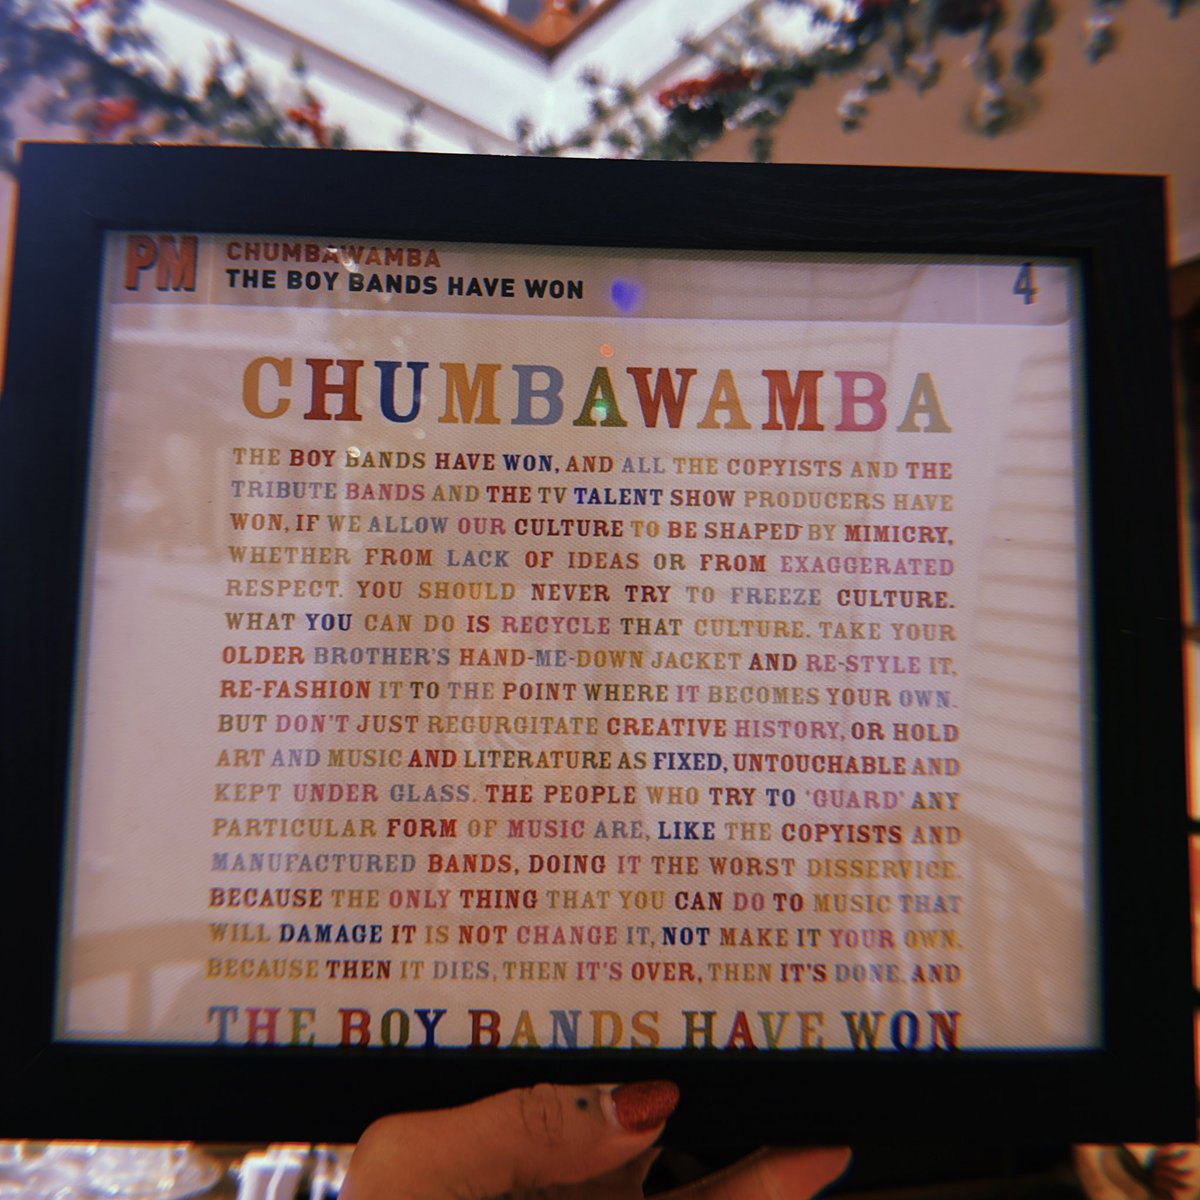 PM
CHUMBAWAMBA
THE BOY BANDS HAVE WON
4
CHUMBAWAMBA
THE BOY BANDS HAVE WON, AND ALL THE COPYISTS AND THE
TRIBUTE BANDS AND THE TV TALENT SHOW PRODUCERS HAVE
WON, IF WE ALLOW OUR CULTURE TO BE SHAPED BY MIMICRY,
WHETHER FROM LACK OF IDEAS OR FROM EXAGGERATED
RESPECT. YOU SHOULD NEVER TRY TO FREEZE CULTURE.
WHAT YOU CAN DO IS RECYCLE THAT CULTURE. TAKE YOUR
OLDER BROTHER'S HAND-ME-DOWN JACKET AND RE-STYLE IT,
RE-FASHION IT TO THE POINT WHERE IT BECOMES YOUR OWN.
BUT DON'T JUST REGURGITATE CREATIVE HISTORY, OR HOLD
ART AND MUSIC AND LITERATURE AS FIXED, UNTOUCHABLE AND
KEPT UNDER GLASS. THE PEOPLE WHO TRY TO 'GUARD' ANY
PARTICULAR FORM OF MUSIC ARE, LIKE THE COPYISTS AND
MANUFACTURED BANDS, DOING IT THE WORST DISSERVICE.
BECAUSE THE ONLY THING THAT YOU CAN DO TO MUSIC THAT
WILL DAMAGE IT IS NOT CHANGE IT, NOT MAKE IT YOUR OWN.
BECAUSE THEN IT DIES, THEN IT'S OVER, THEN IT'S DONE, AND
THE BOY BANDS HAVE WON